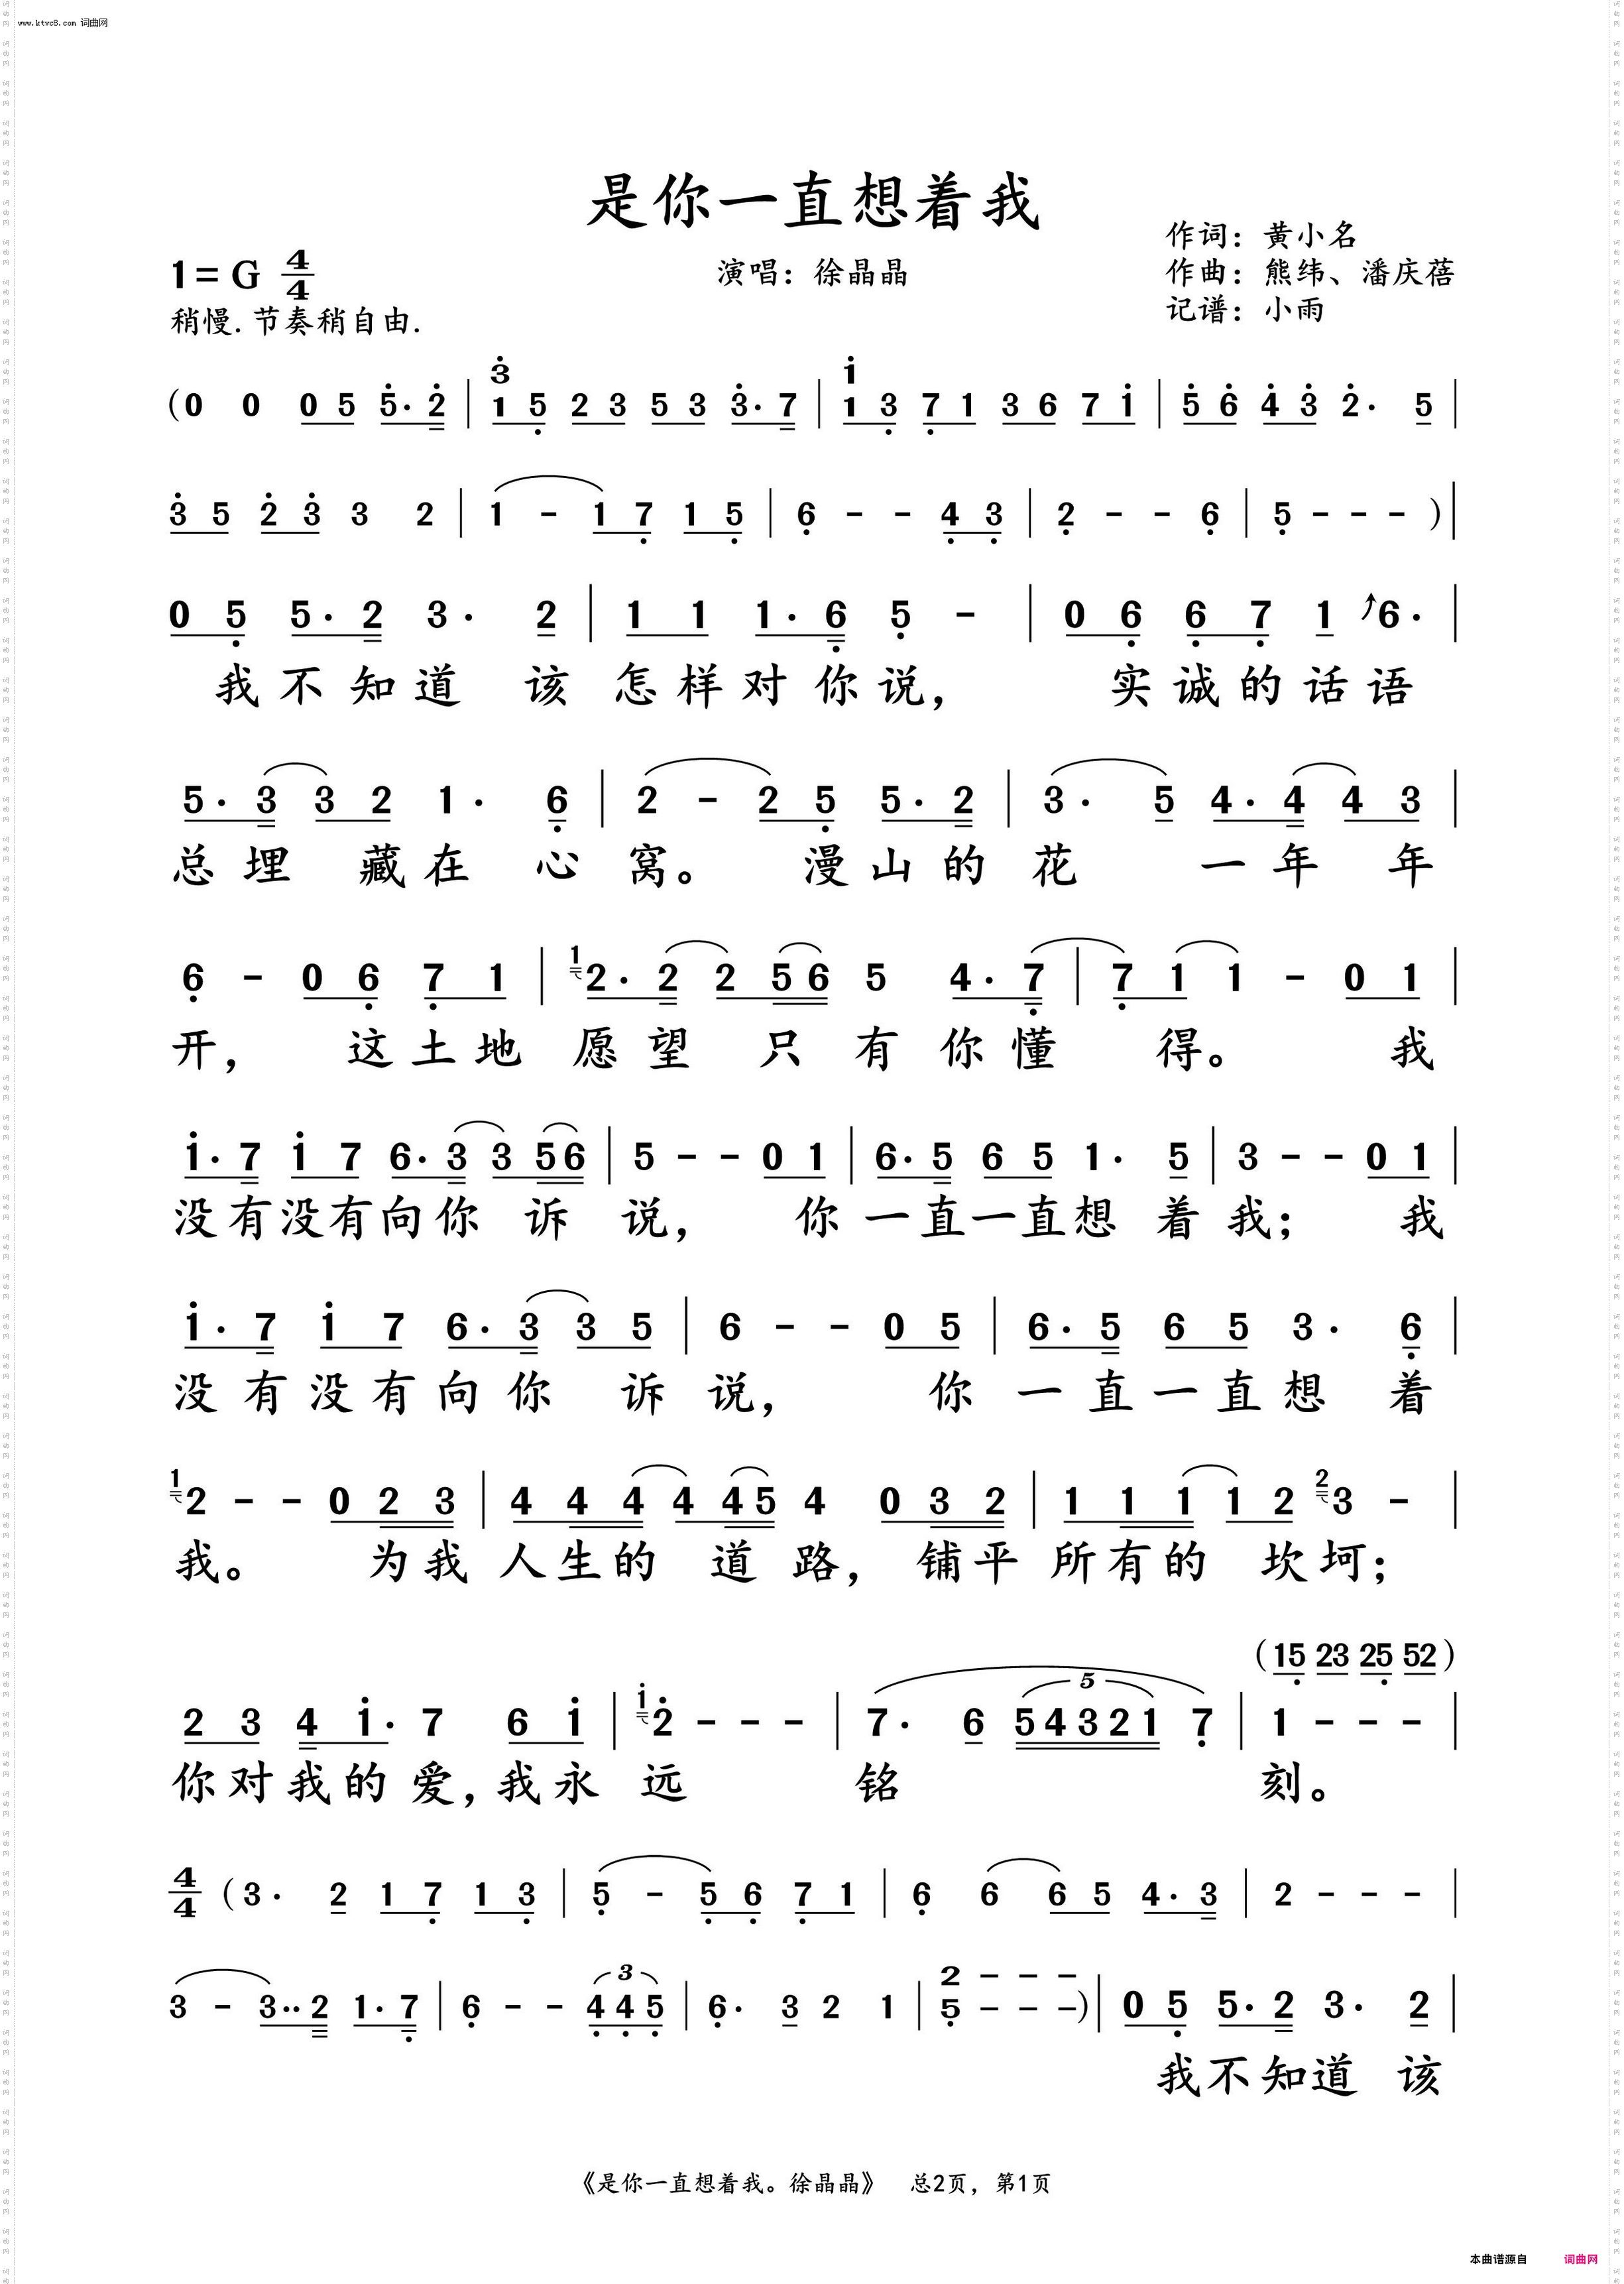 www.ktvc8.com 词曲网
是你一直想着我
作词：黄小名
1=G 4/4
演唱：徐晶晶
作曲：熊纬、潘庆蓓
稍慢.节奏稍自由.
记谱：小雨
(0 0 0 5 5· 2 | 3 1 5 2 3 5 3 3· 7 | 1 1 3 7 1 3 6 7 1 | 5 6 4 3 2· 5 |
3 5 2 3 3 2 | 1 - 1 7 1 5 | 6 - - 4 3 | 2 - - 6 | 5 - - - )|
0 5 5· 2 3· 2 | 1 1 1· 6 5 - | 0 6 6 7 1 6· |
我不知道 该 怎样对你说， 实诚的话语
5· 3 3 2 1· 6 | 2 - 2 5 5· 2 | 3· 5 4· 4 4 3 |
总埋 藏在 心 窝。 漫山的 花 一年 年
6 - 0 6 7 1 | 1 2· 2 2 5 6 5 4· 7 | 7 1 1 - 0 1 |
开， 这土地 愿望 只 有 你懂 得。 我
1· 7 1 7 6· 3 3 5 6 | 5 - - 0 1 | 6· 5 6 5 1· 5 | 3 - - 0 1 |
没有没有向你 诉 说， 你 一直一直想 着 我； 我
1· 7 1 7 6· 3 3 5 | 6 - - 0 5 | 6· 5 6 5 3· 6 |
没有没有向你 诉 说， 你 一直一直想 着
1 2 - - 0 2 3 | 4 4 4 4 4 5 4 0 3 2 | 1 1 1 1 2 2 3 - |
我。 为我 人生的 道 路，铺平 所有的 坎坷；
(15 23 25 52)
2 3 4 1· 7 6 1 | 1 2 - - - | 7· 6 5 5 4 3 2 1 7 | 1 - - - |
你对我的爱，我永 远 铭 刻。
4/4 (3· 2 1 7 1 3 | 5 - 5 6 7 1 | 6 6 6 5 4· 3 | 2 - - - |
3 - 3·· 2 1· 7 | 6 - - 3 4 4 5 | 6· 3 2 1 | 2 - - - 5 - - -)| 0 5 5· 2 3· 2 |
我不知道 该
《是你一直想着我。徐晶晶》 总2页，第1页
本曲谱源自 词曲网